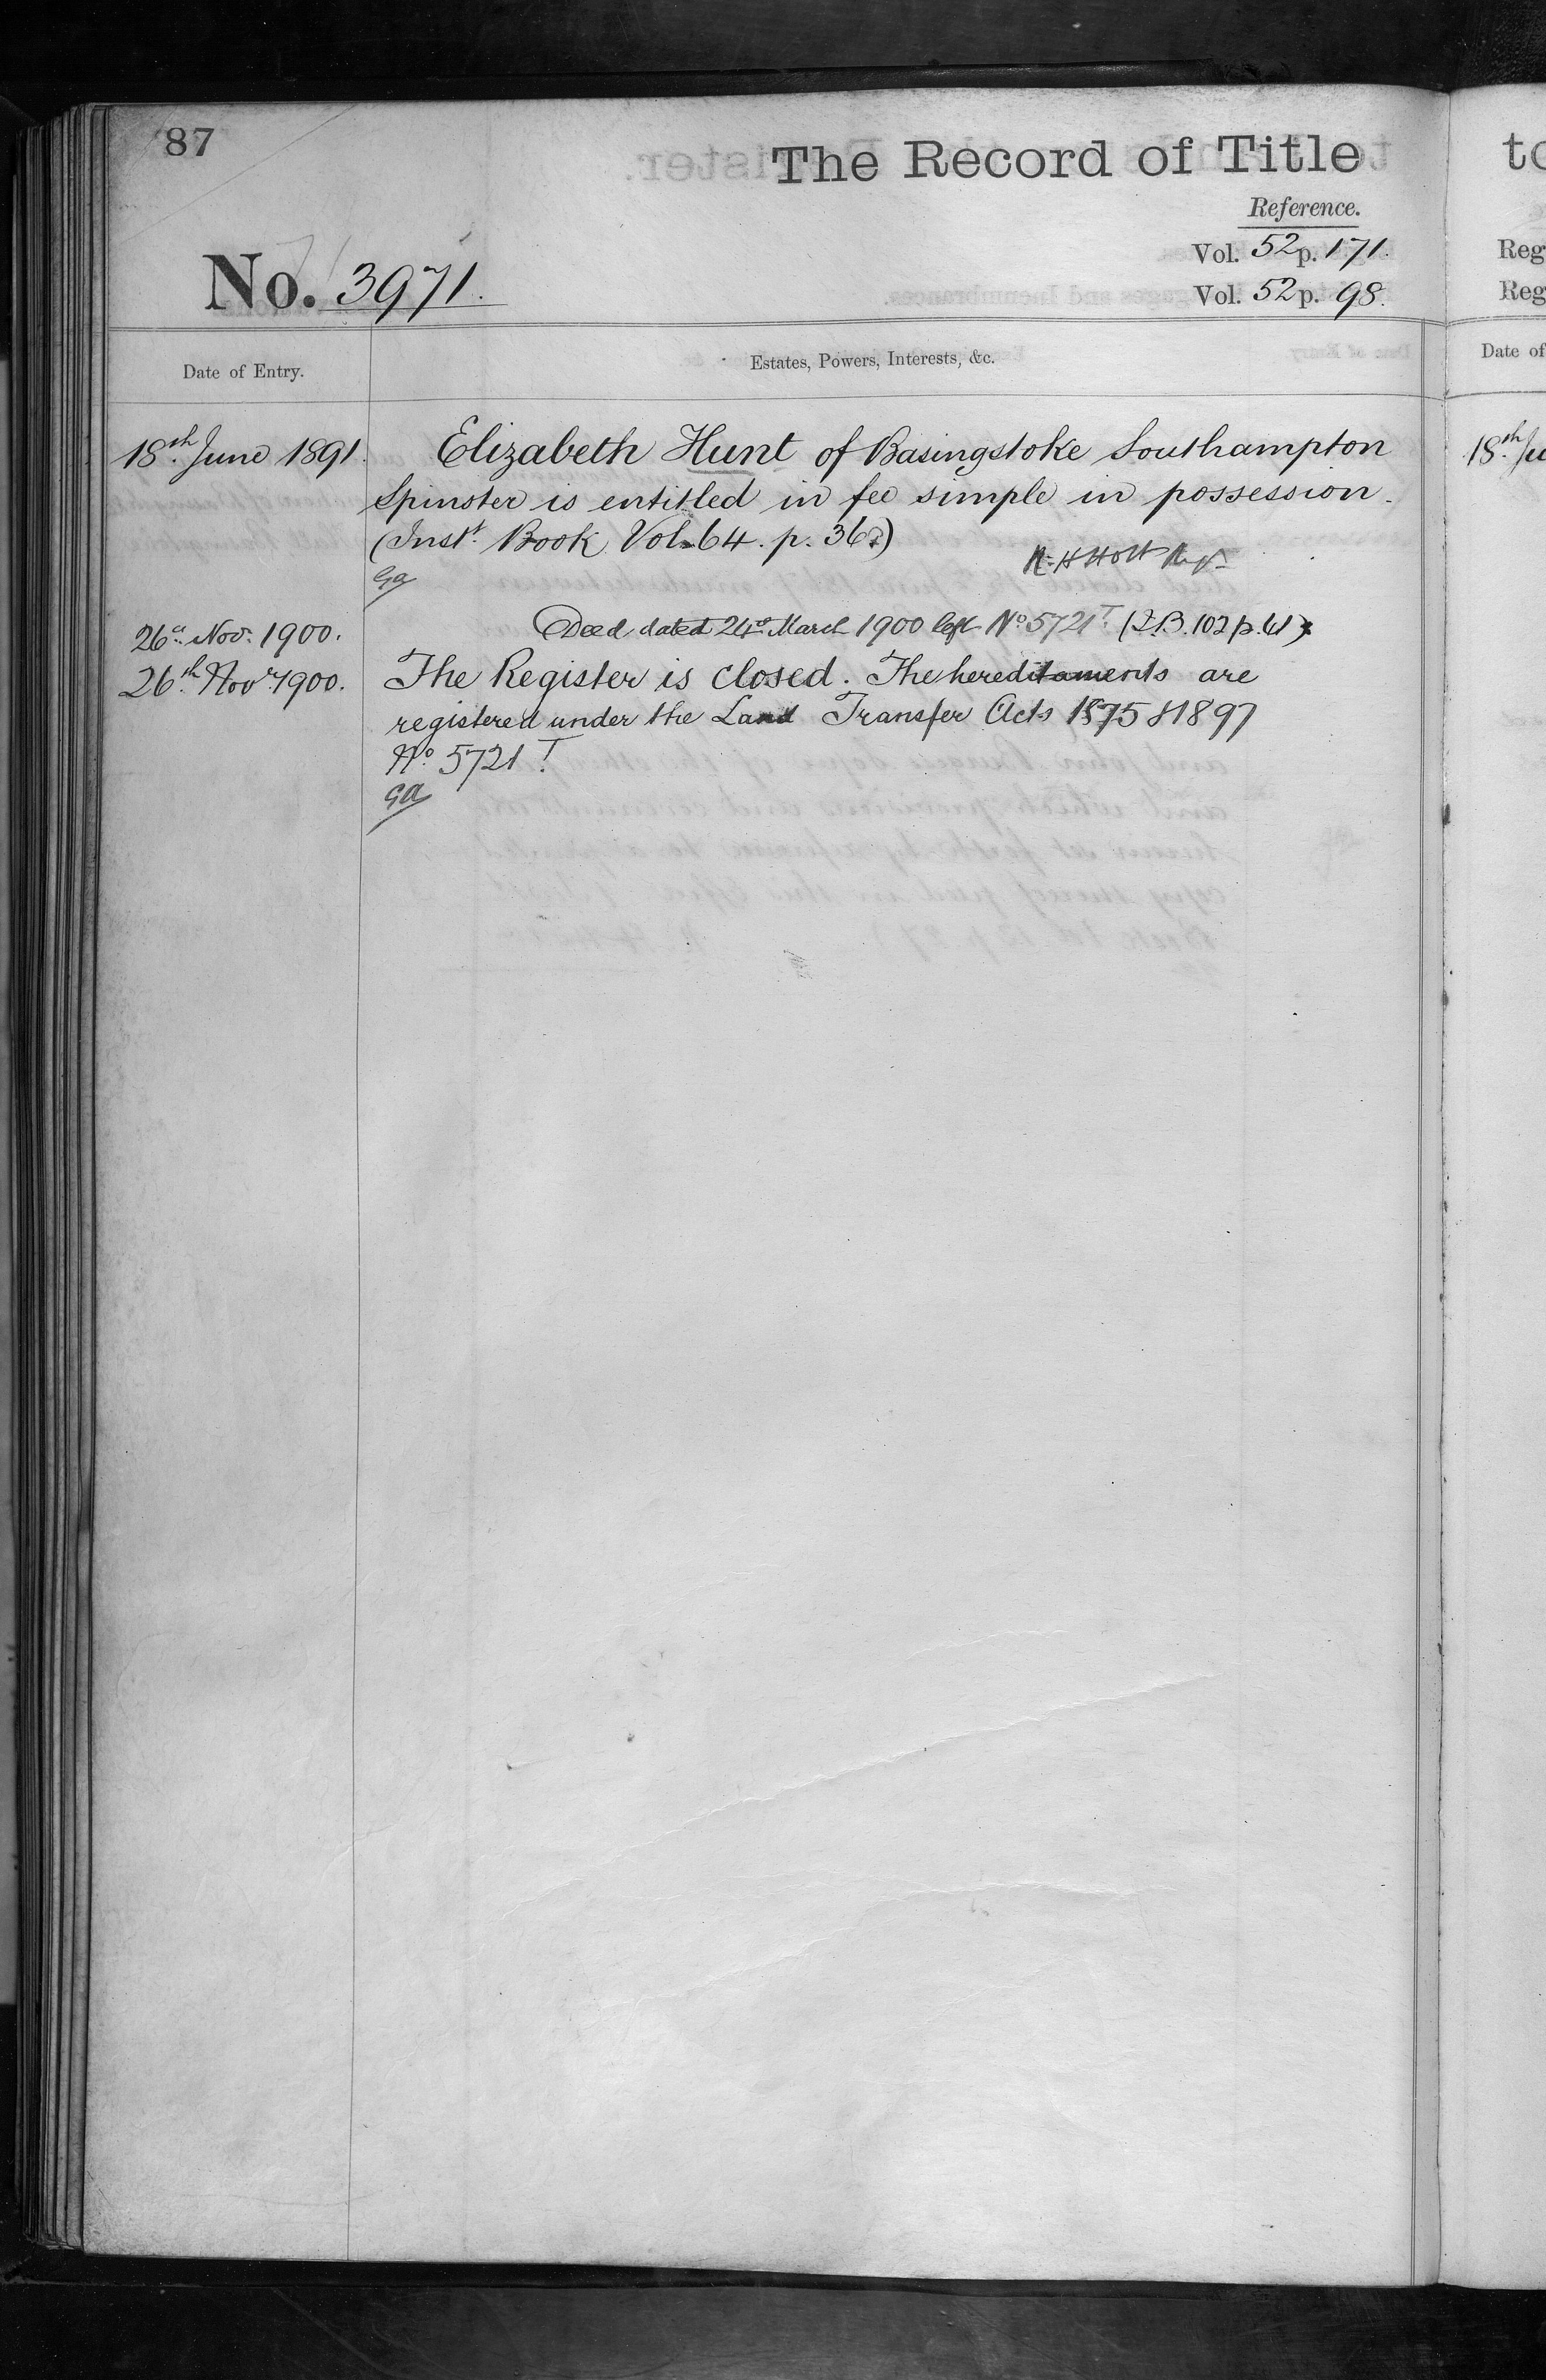 87
The Record of Title
Reference.
Vol. 52 p. 171.
No. 3971.
Vol. 52 p. 98.
Date of Entry.
Estates, Powers, Interests, &c.
18th June 1891.
Elizabeth Hunt of Basingstoke Southampton
Spinster is entitled in fee simple in possession.
(Inst. Book Vol. 64. p. 36)
Ga
26th Nov. 1900.
Deed dated 24th March 1900 left No 5721T (I.B. 102 p. 61)
26th Novr 1900.
The Register is closed. The hereditaments are
registered under the Land Transfer Acts 1875 & 1897
No 5721 T.
Ga
to
Reg
Reg
Date of
18th Ju